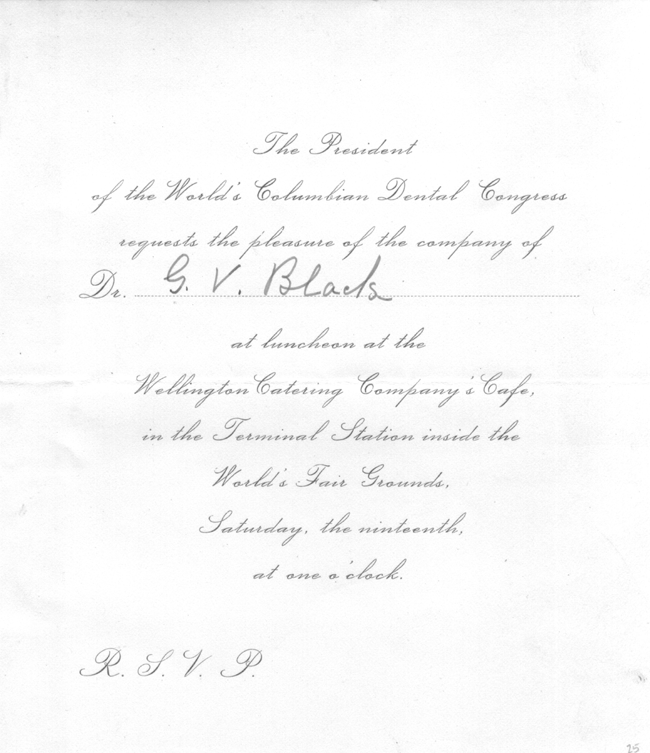 The President
of the World's Columbian Dental Congress
requests the pleasure of the company of
Dr. G. V. Black
at luncheon at the
Wellington Catering Company's Cafe,
in the Terminal Station inside the
World's Fair Grounds,
Saturday, the ninteenth,
at one o'clock.
R. S. V. P.
25